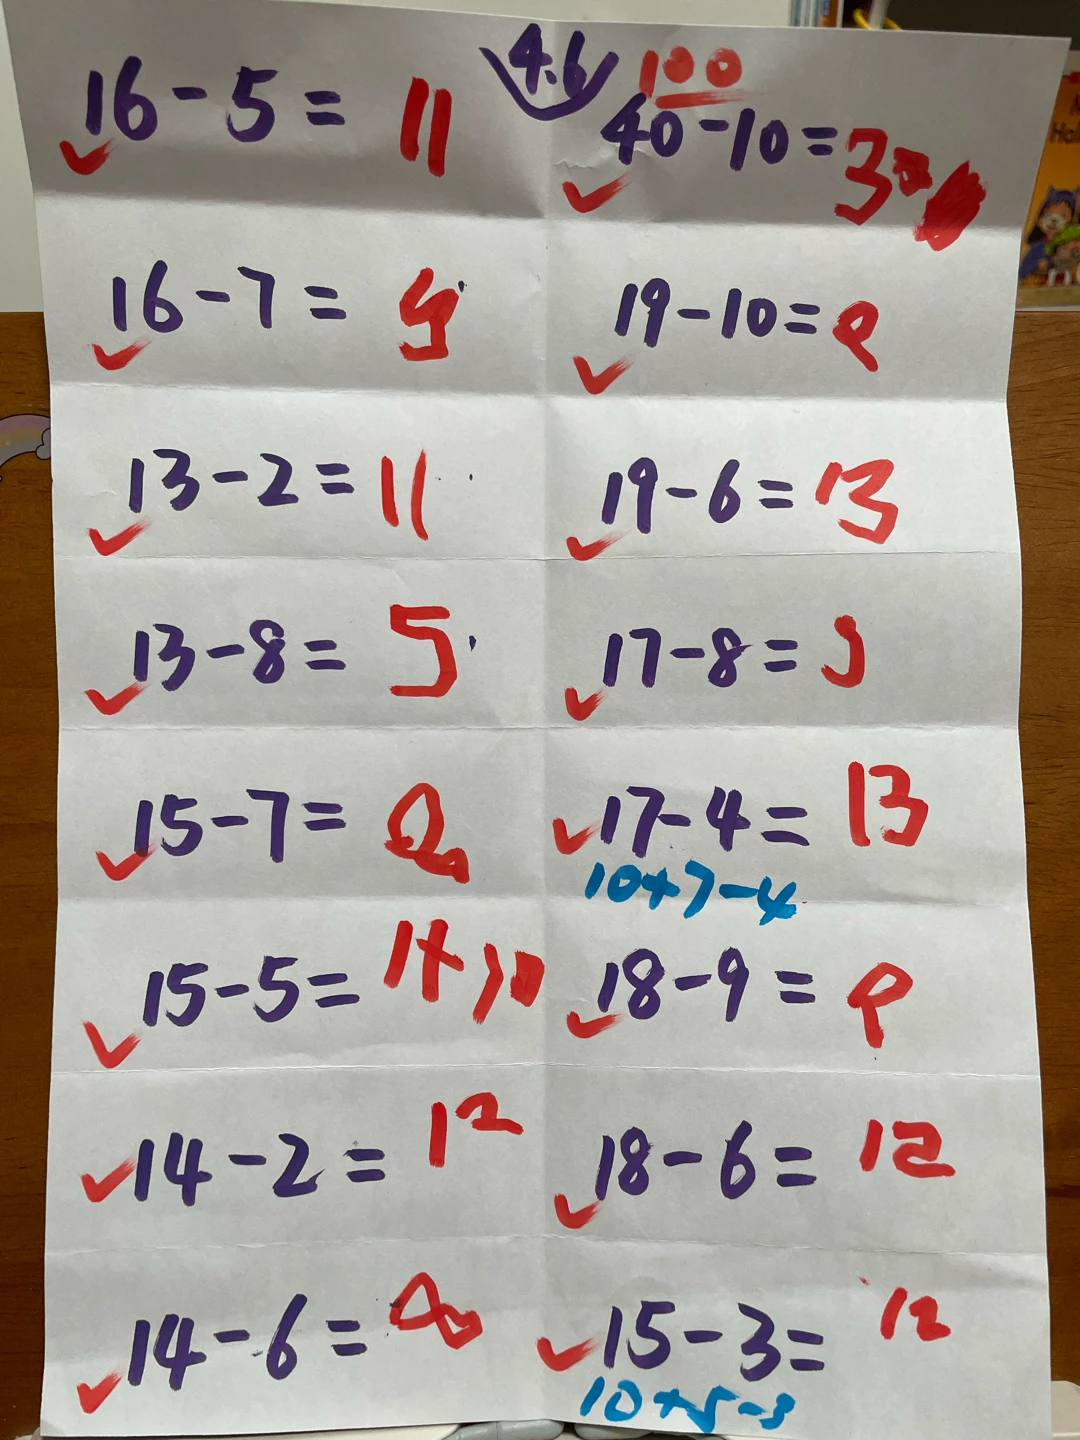 4.6 100
16-5= 11 40-10=30
16-7= 9 19-10=9
13-2= 11 19-6=13
13-8= 5 17-8=9
15-7= 8 17-4= 13
10+7-4
15-5= 10 18-9= 9
14-2= 12 18-6= 12
14-6= 8 15-3= 12
10+5-3